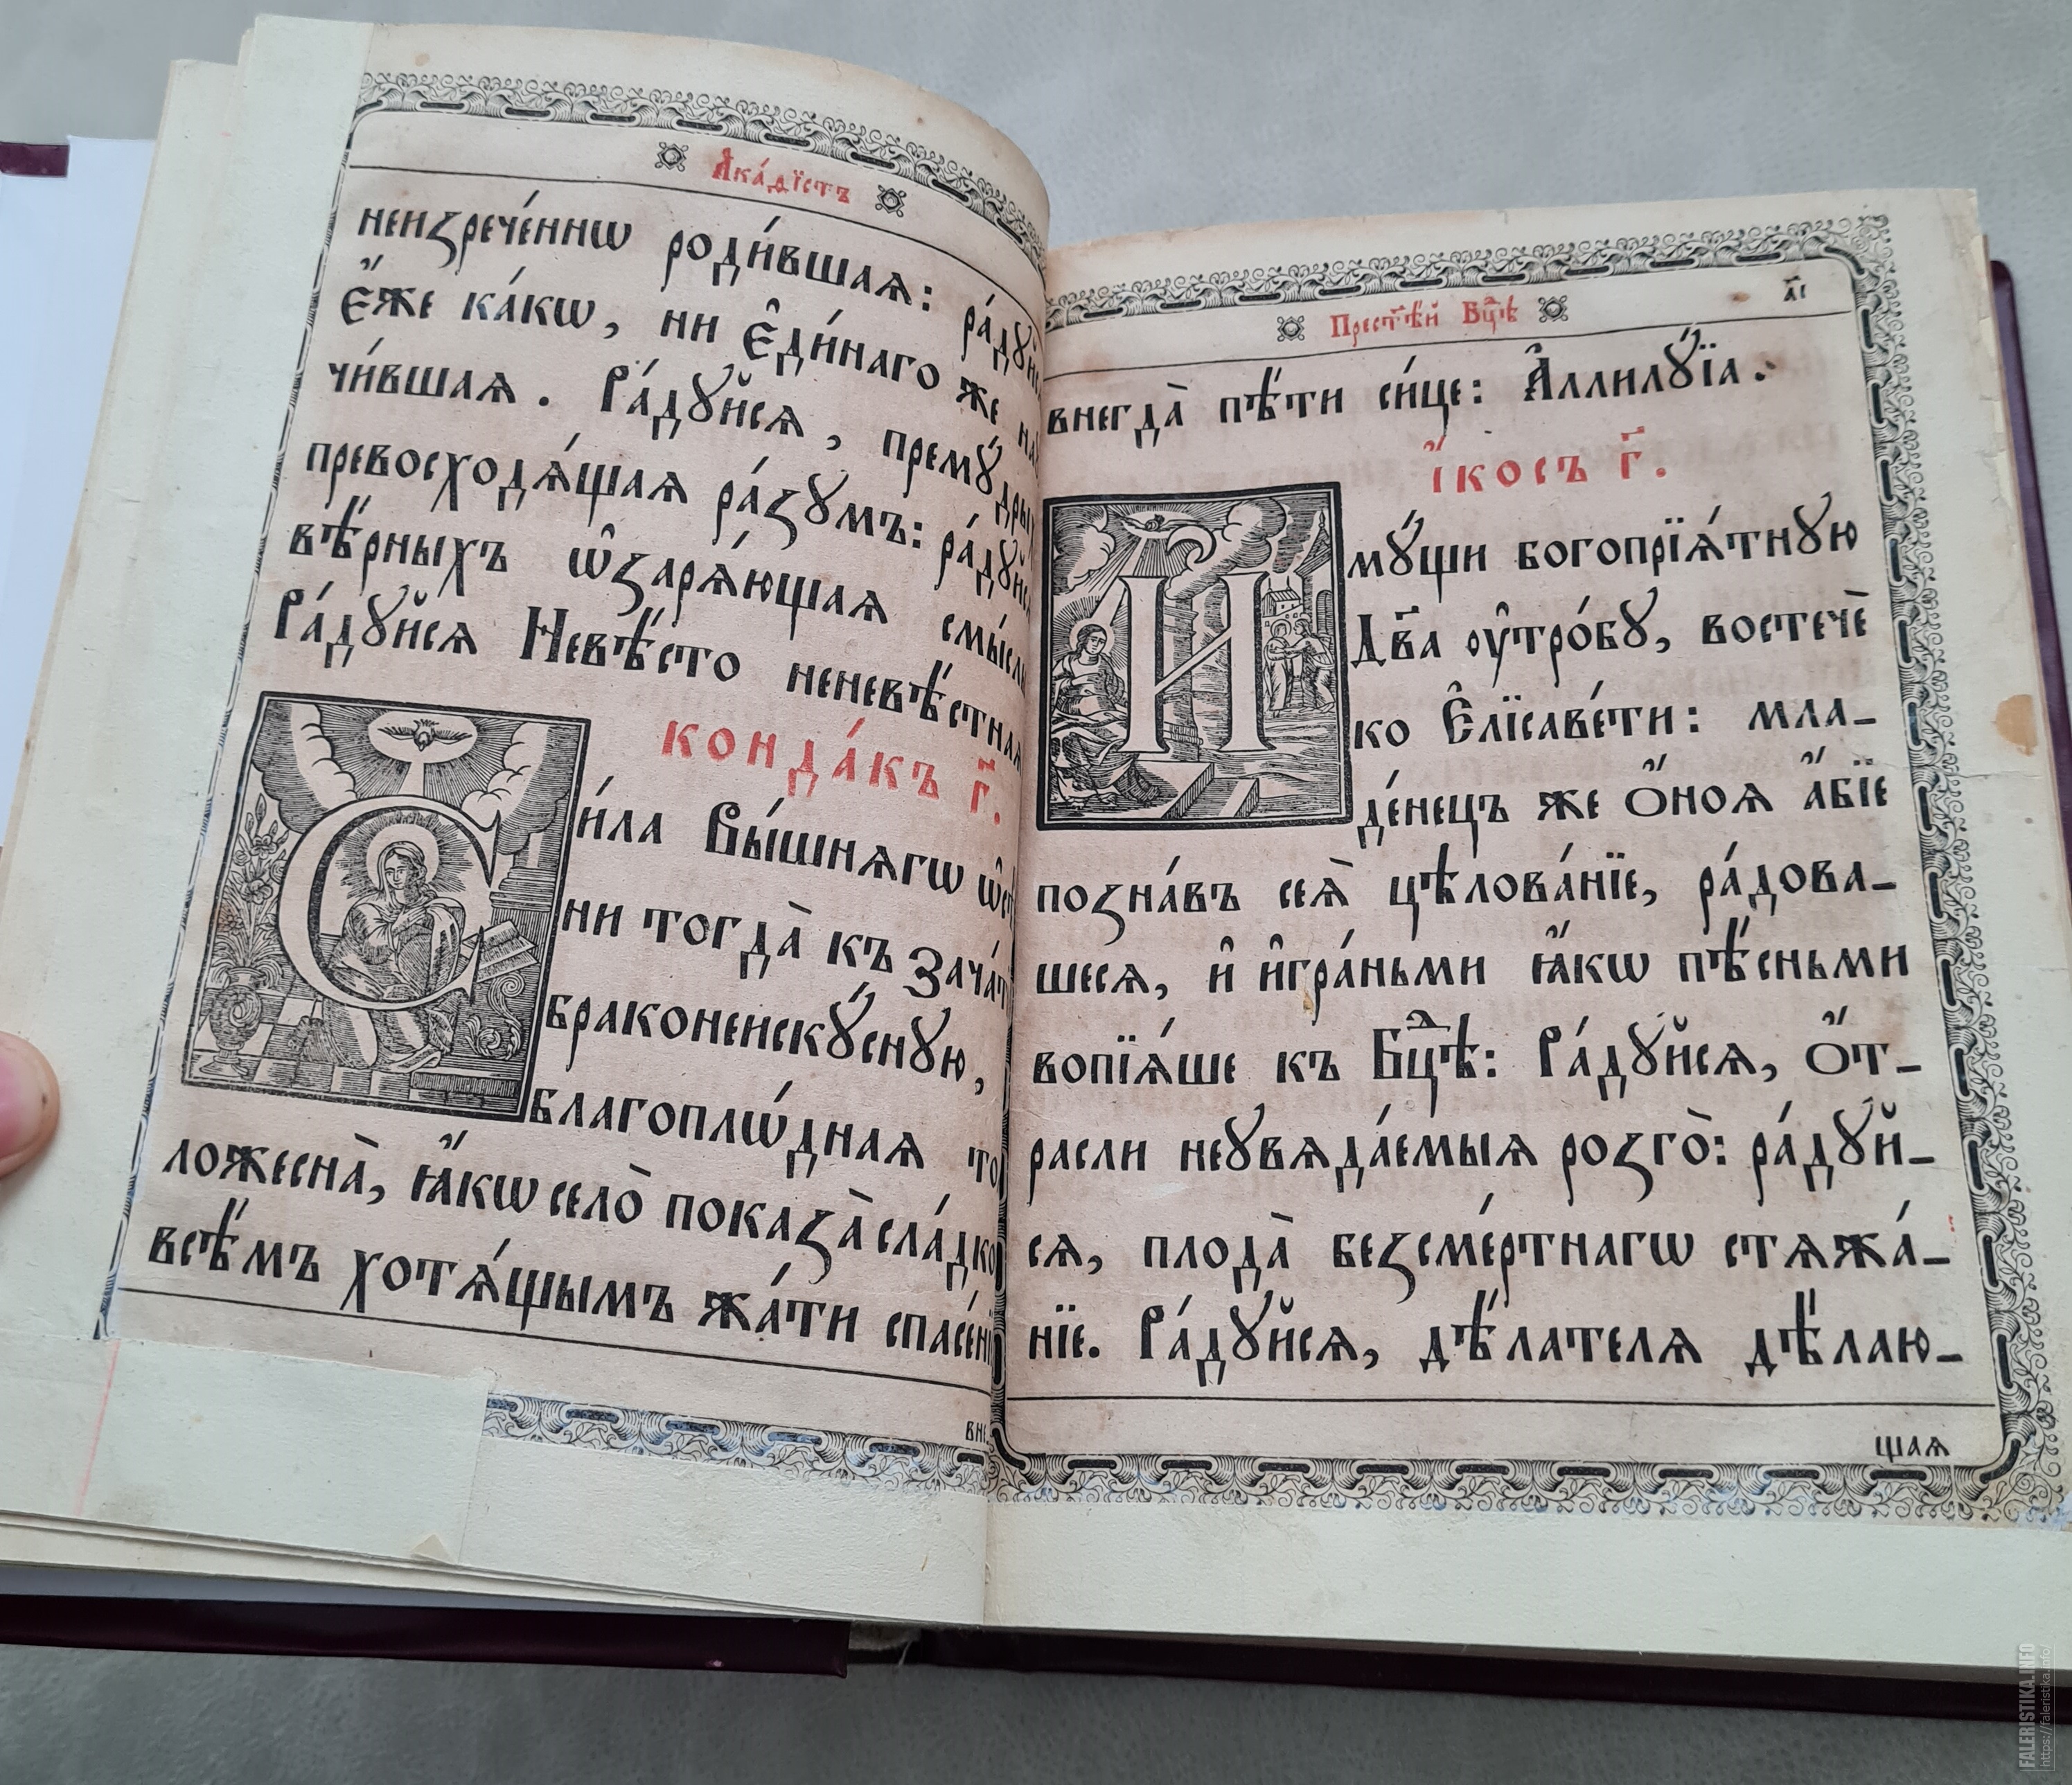 А҆ка́ѳїстъ
неизрече́ннѡ роди́вшая: ра́дꙋйс
є҆́же ка́кѡ, ни є҆ди́наго же на
чи́вшая. Ра́дꙋйсѧ, премꙋ́дры
превосходѧ́щая ра́зꙋмъ: ра́дꙋйсѧ
вѣ́рныхъ ѡ҆зарѧ́ющая смы́слы
Ра́дꙋйсѧ Невѣ́сто неневѣ́стная
конда́къ г҃.
Си́ла Вы́шнягѡ ѡ҆сѣ
ни тогда̀ къ Зача́т
браконеискꙋ́снꙋю,
благоплѡ́дная то
ложесна̀, ꙗ҆́кѡ село̀ показа̀ сла́дко
всѣ́мъ хотѧ́щымъ жа́ти спасе́нї
вне
Прест҃ѣ́й Бц҃ѣ
а҃і
внегда̀ пѣ́ти си́це: А҆ллилꙋ́їа.
і҆́косъ г҃.
И҆мꙋ́щи богопрїѧ́тнꙋю
Дв҃а оу҆тро́бꙋ, востечѐ
ко Є҆лїсаве́ти: мла-
де́нецъ же ѻ҆́ноѧ а҆́бїе
позна́въ сеѧ̀ цѣлова́нїе, ра́дова-
шесѧ, и҆ и҆гра́ньми ꙗ҆́кѡ пѣ́сньми
вопїѧ́ше къ Бц҃ѣ: Ра́дꙋйсѧ, ѻ҆́т-
расли неꙋвѧда́емыѧ розго̀: ра́дꙋй-
сѧ, плода̀ безсме́ртнагѡ стѧжа́-
нїе. Ра́дꙋйсѧ, дѣ́лателѧ дѣ́лаю-
щая
FALERISTIKA.INFO
https://faleristika.info/